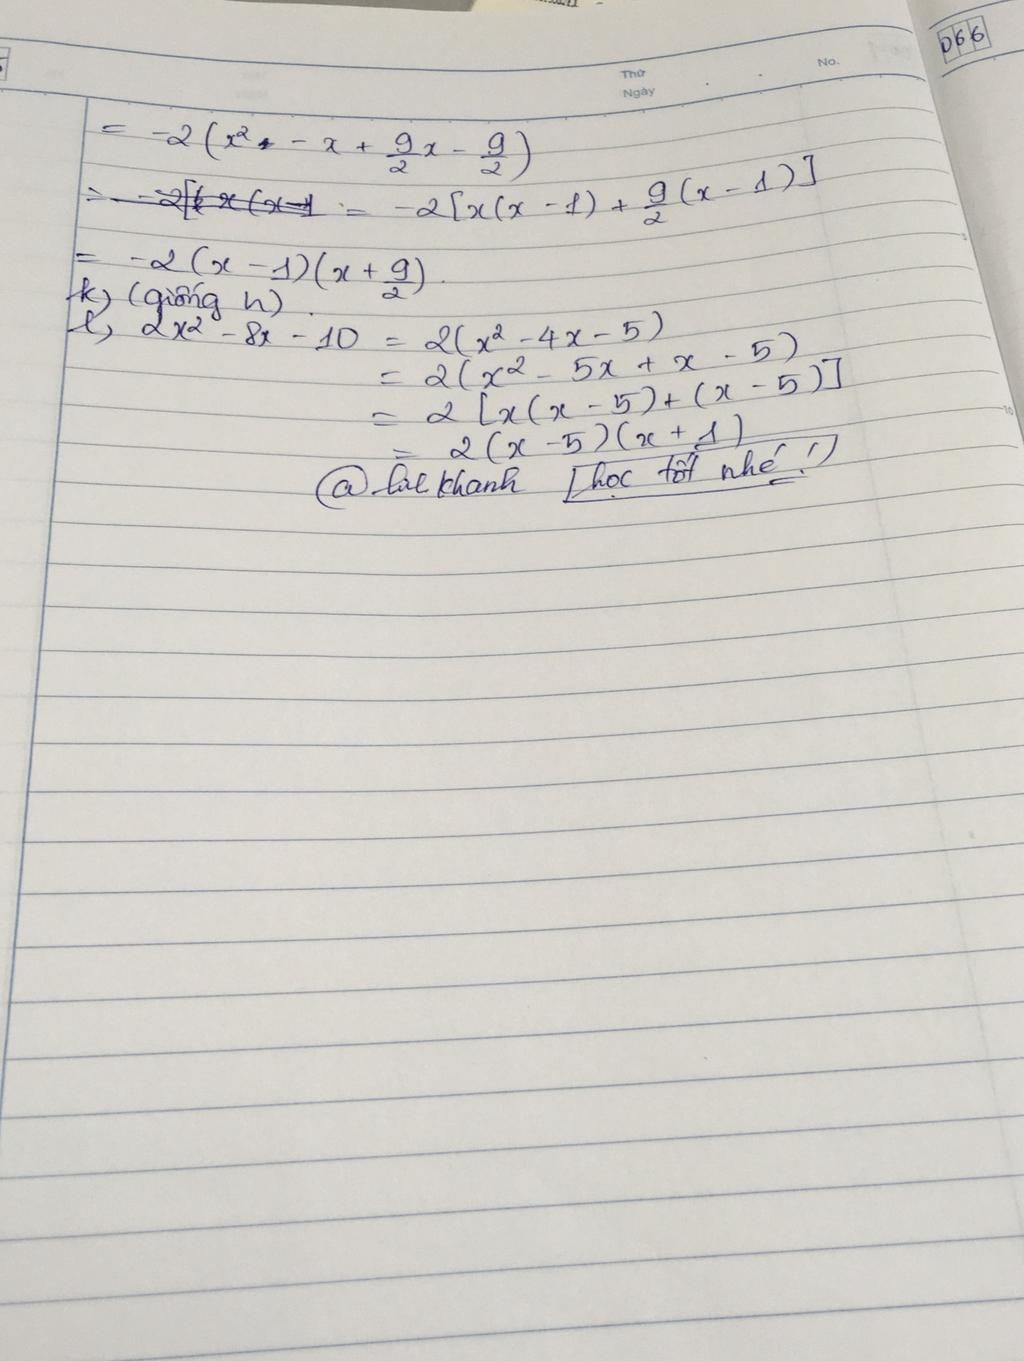 066
Thứ
No.
Ngày
= -2(x² - x + 9/2 x - 9/2)
= -2[x(x-1 = -2[x(x - 1) + 9/2(x - 1)]
= -2(x - 1)(x + 9/2).
k, (giống h).
l, 2x² - 8x - 10 = 2(x² - 4x - 5)
= 2(x² - 5x + x - 5)
= 2 [x(x - 5) + (x - 5)]
= 2(x - 5)(x + 1)
@ khanh [học tốt nhé!)
10